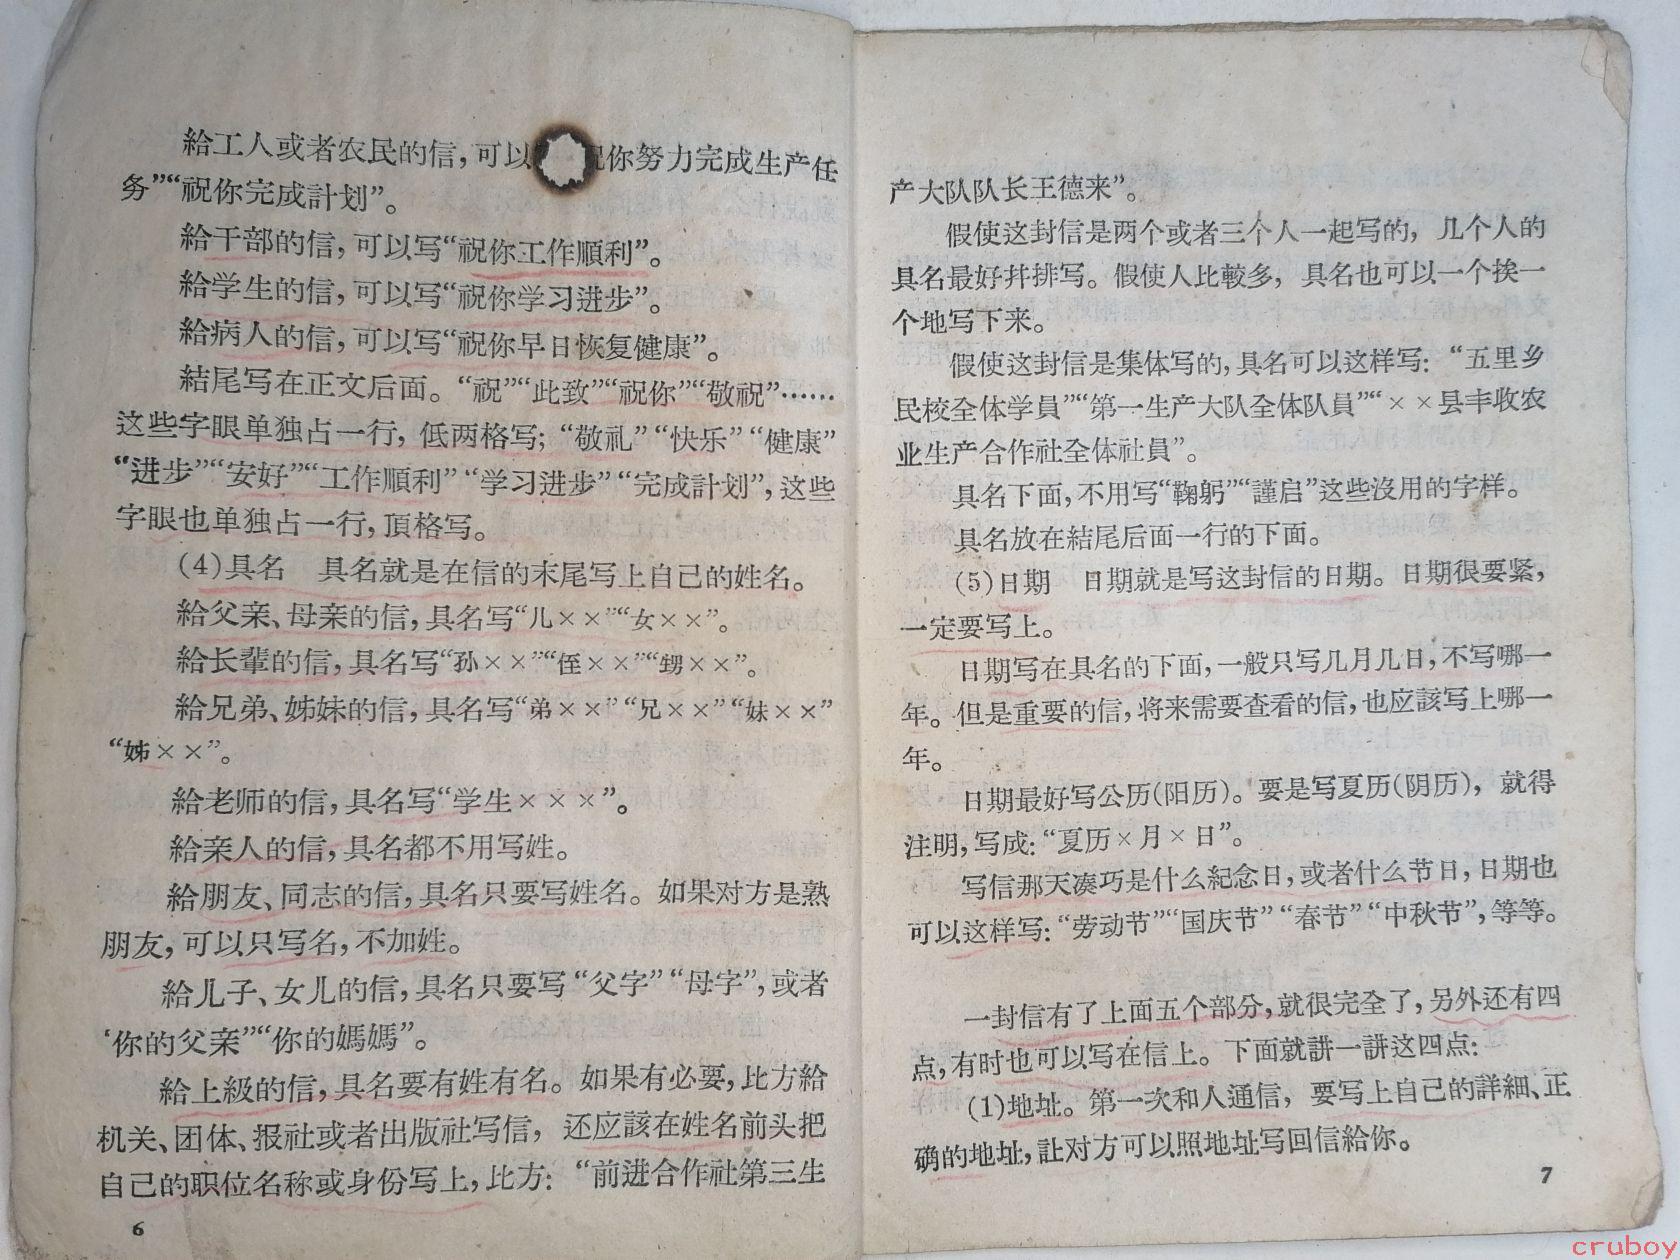 給工人或者农民的信，可以 你努力完成生产任
务”“祝你完成計划”。
給干部的信，可以写“祝你工作順利”。
給学生的信，可以写“祝你学习进步”。
給病人的信，可以写“祝你早日恢复健康”。
結尾写在正文后面。“祝”“此致”“祝你”“敬祝”……
这些字眼单独占一行，低两格写；“敬礼”“快乐”“健康”
“进步”“安好”“工作順利”“学习进步”“完成計划”，这些
字眼也单独占一行，頂格写。
(4)具名　具名就是在信的末尾写上自己的姓名。
給父亲、母亲的信，具名写“儿××”“女××”。
給长輩的信，具名写“孙××”“侄××”“甥××”。
給兄弟、姊妹的信，具名写“弟××”“兄××”“妹××”
“姊××”。
給老师的信，具名写“学生×××”。
給亲人的信，具名都不用写姓。
給朋友、同志的信，具名只要写姓名。如果对方是熟
朋友，可以只写名，不加姓。
給儿子、女儿的信，具名只要写“父字”“母字”，或者
‘你的父亲”“你的媽媽”。
給上級的信，具名要有姓有名。如果有必要，比方給
机关、团体、报社或者出版社写信，还应該在姓名前头把
自己的职位名称或身份写上，比方：“前进合作社第三生
6
产大队队长王德来”。
假使这封信是两个或者三个人一起写的，几个人的
具名最好幷排写。假使人比較多，具名也可以一个挨一
个地写下来。
假使这封信是集体写的，具名可以这样写：“五里乡
民校全体学員”“第一生产大队全体队員”“××县丰收农
业生产合作社全体社員”。
具名下面，不用写“鞠躬”“謹启”这些沒用的字样。
具名放在結尾后面一行的下面。
(5)日期　日期就是写这封信的日期。日期很要紧，
一定要写上。
日期写在具名的下面，一般只写几月几日，不写哪一
年。但是重要的信，将来需要查看的信，也应該写上哪一
年。
日期最好写公历(阳历)。要是写夏历(阴历)，就得
注明，写成：“夏历×月×日”。
写信那天凑巧是什么紀念日，或者什么节日，日期也
可以这样写：“劳动节”“国庆节”“春节”“中秋节”，等等。
一封信有了上面五个部分，就很完全了，另外还有四
点，有时也可以写在信上。下面就講一講这四点：
(1)地址。第一次和人通信，要写上自己的詳細、正
确的地址，让对方可以照地址写回信給你。
7
cruboy